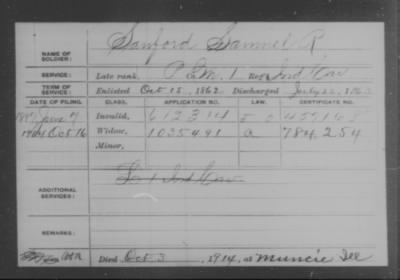 NAME OF SOLDIER: Sanford Samuel R
SERVICE: Late rank, I Reg't Ind Cav
TERM OF SERVICE: Enlisted Oct 15, 1862 Discharged
DATE OF FILING. CLASS. APPLICATION NO. LAW. CERTIFICATE NO.
June 7 Invalid, 612314
Oct 16 Widow, 1035491 a 784,254
Minor,
ADDITIONAL SERVICES: Ind Cav
REMARKS:
Died Oct 3, 1914, at Muncie